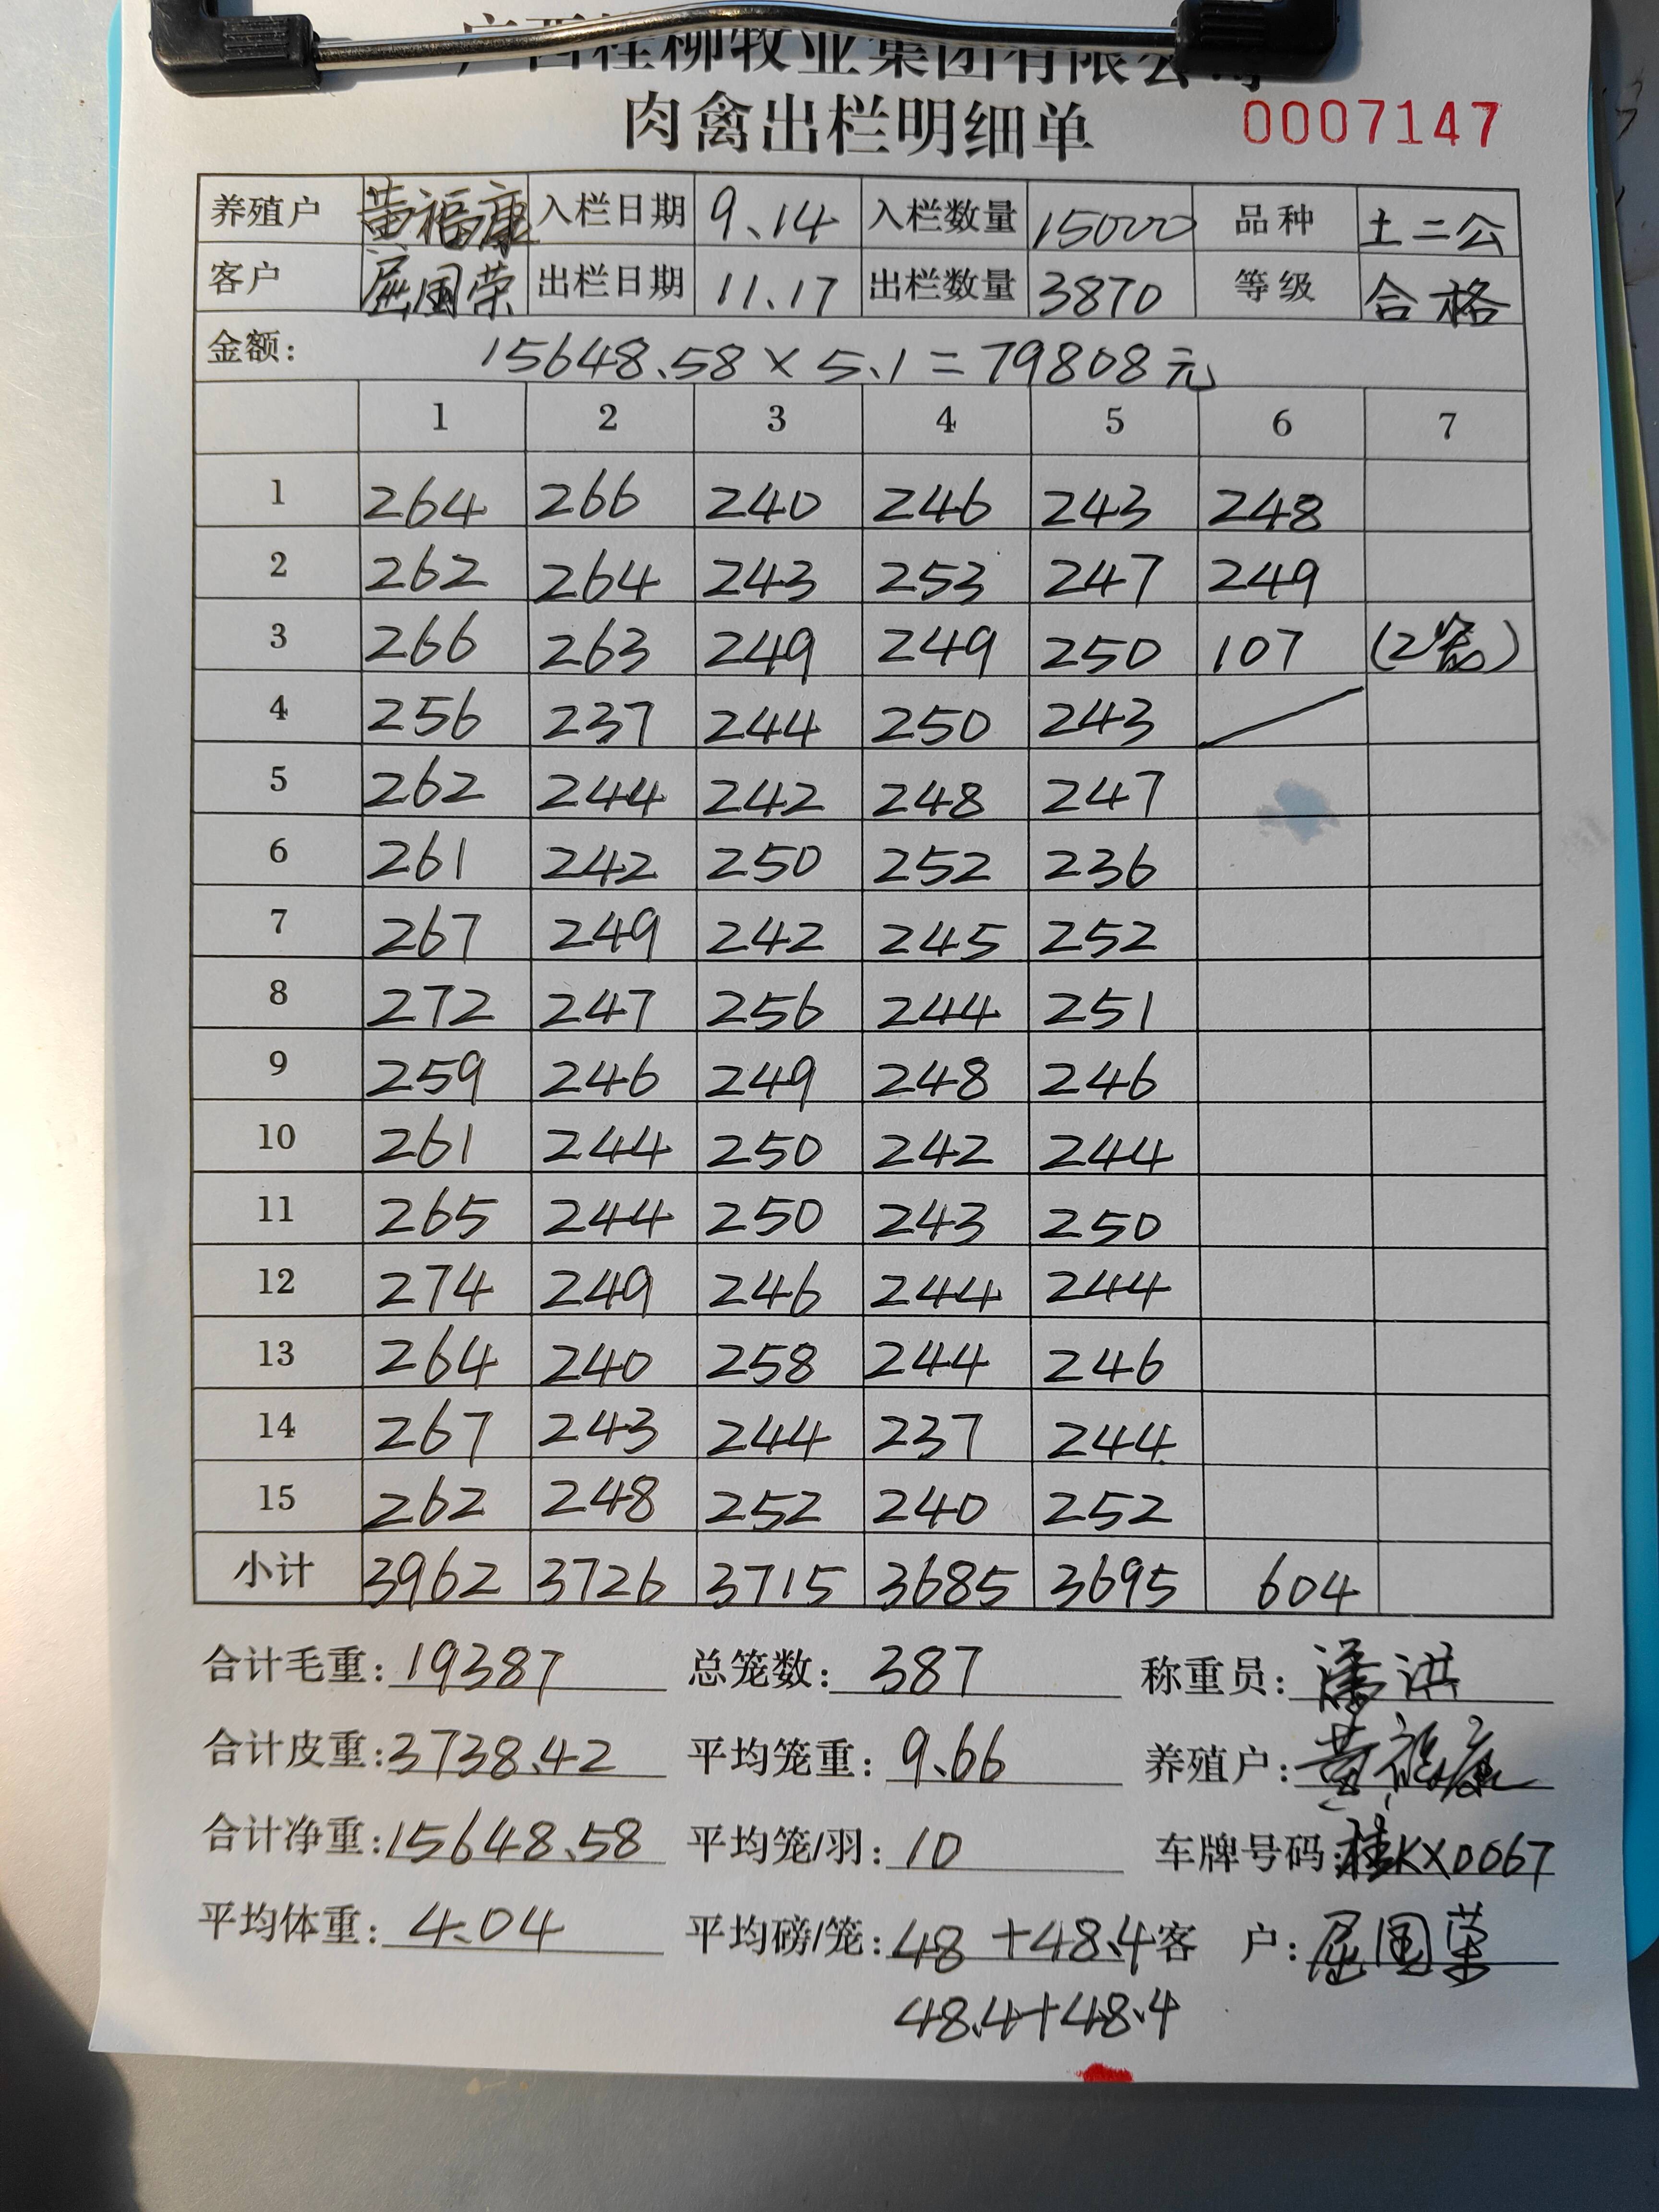 广西桂柳牧业集团有限公司
肉禽出栏明细单 0007147
养殖户 黄福康 入栏日期 9.14 入栏数量 15000 品种 土二公
客户 屈国荣 出栏日期 11.17 出栏数量 3870 等级 合格
金额: 15648.58×5.1=79808元
1 2 3 4 5 6 7
1 264 266 240 246 243 248
2 262 264 243 253 247 249
3 266 263 249 249 250 107 (2笼)
4 256 237 244 250 243
5 262 244 242 248 247
6 261 242 250 252 236
7 267 249 242 245 252
8 272 247 256 244 251
9 259 246 249 248 246
10 261 244 250 242 244
11 265 244 250 243 250
12 274 249 246 244 244
13 264 240 258 244 246
14 267 243 244 237 244
15 262 248 252 240 252
小计 3962 3726 3715 3685 3695 604
合计毛重: 19387 总笼数: 387 称重员: 潘洪
合计皮重: 3738.42 平均笼重: 9.66 养殖户: 黄福康
合计净重: 15648.58 平均笼/羽: 10 车牌号码: 桂KX0067
平均体重: 4.04 平均磅/笼: 48+48.4 客户: 屈国荣
48.4+48.4